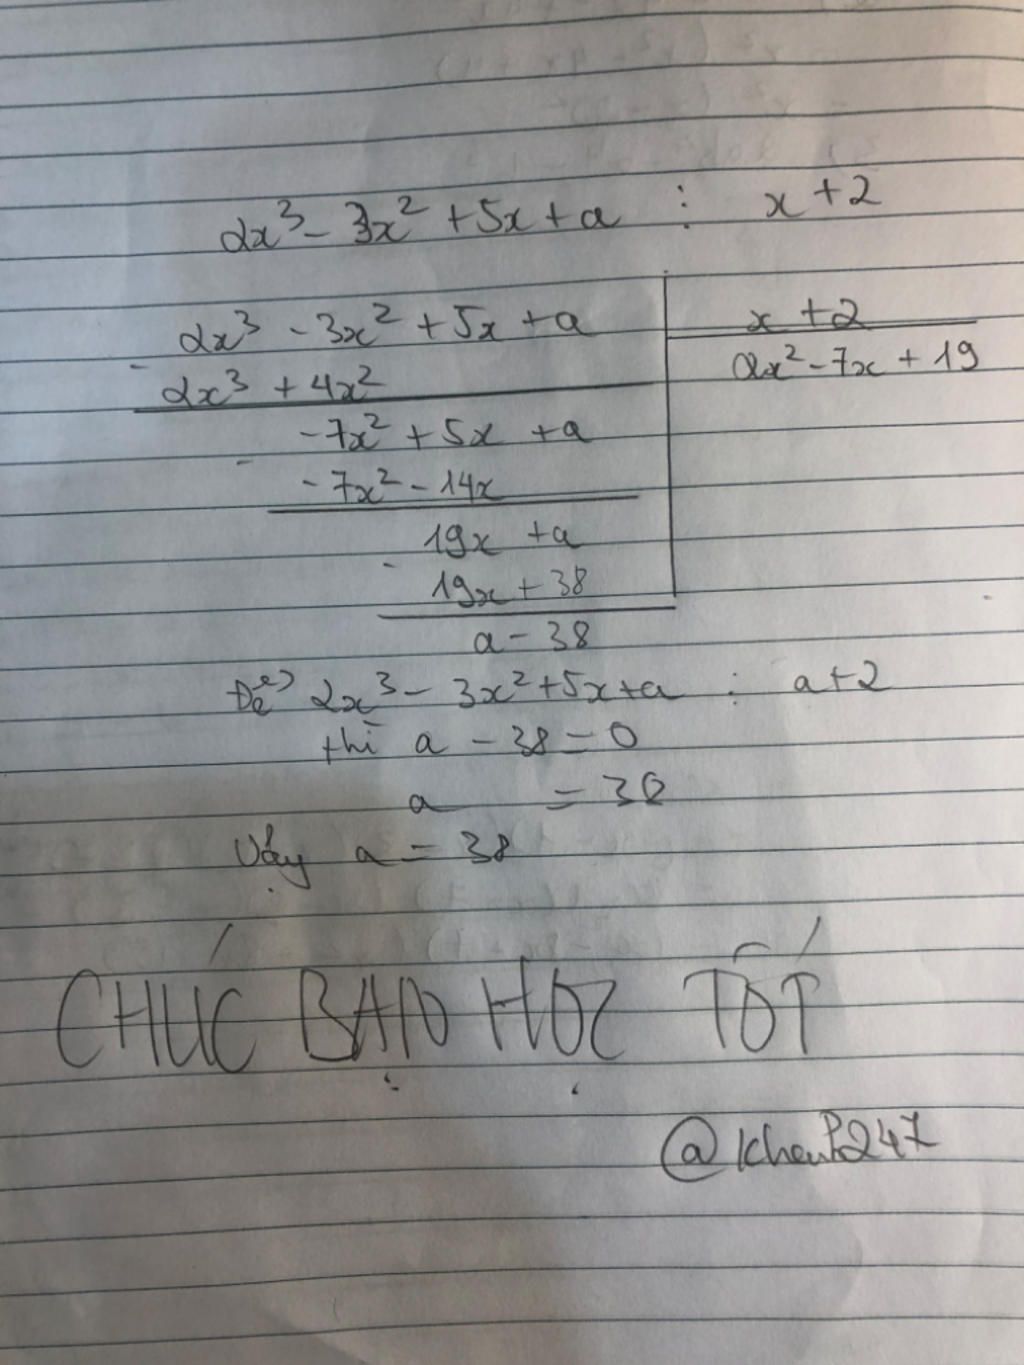 2x³ - 3x² + 5x + a ⋮ x + 2
2x³ - 3x² + 5x + a
x + 2
- 2x³ + 4x²
2x² - 7x + 19
-7x² + 5x + a
- -7x² - 14x
19x + a
- 19x + 38
a - 38
Để 2x³ - 3x² + 5x + a ⋮ a + 2
thì a - 38 = 0
a = 38
Vậy a = 38
CHÚC BẠN HỌC TỐT